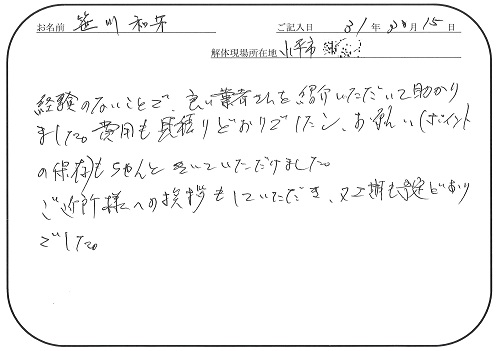 お名前 笹川 和芳 ご記入日 31年 3月15日
解体現場所在地 小平市
経験のないことで、良い業者さんを紹介いただいて助かり
ました。費用も見積りどおりでしたし、お願い(ポイント
の保存)もちゃんときいていただけました。
ご近所様への挨拶もしていただき、又工期も予定どおり
でした。